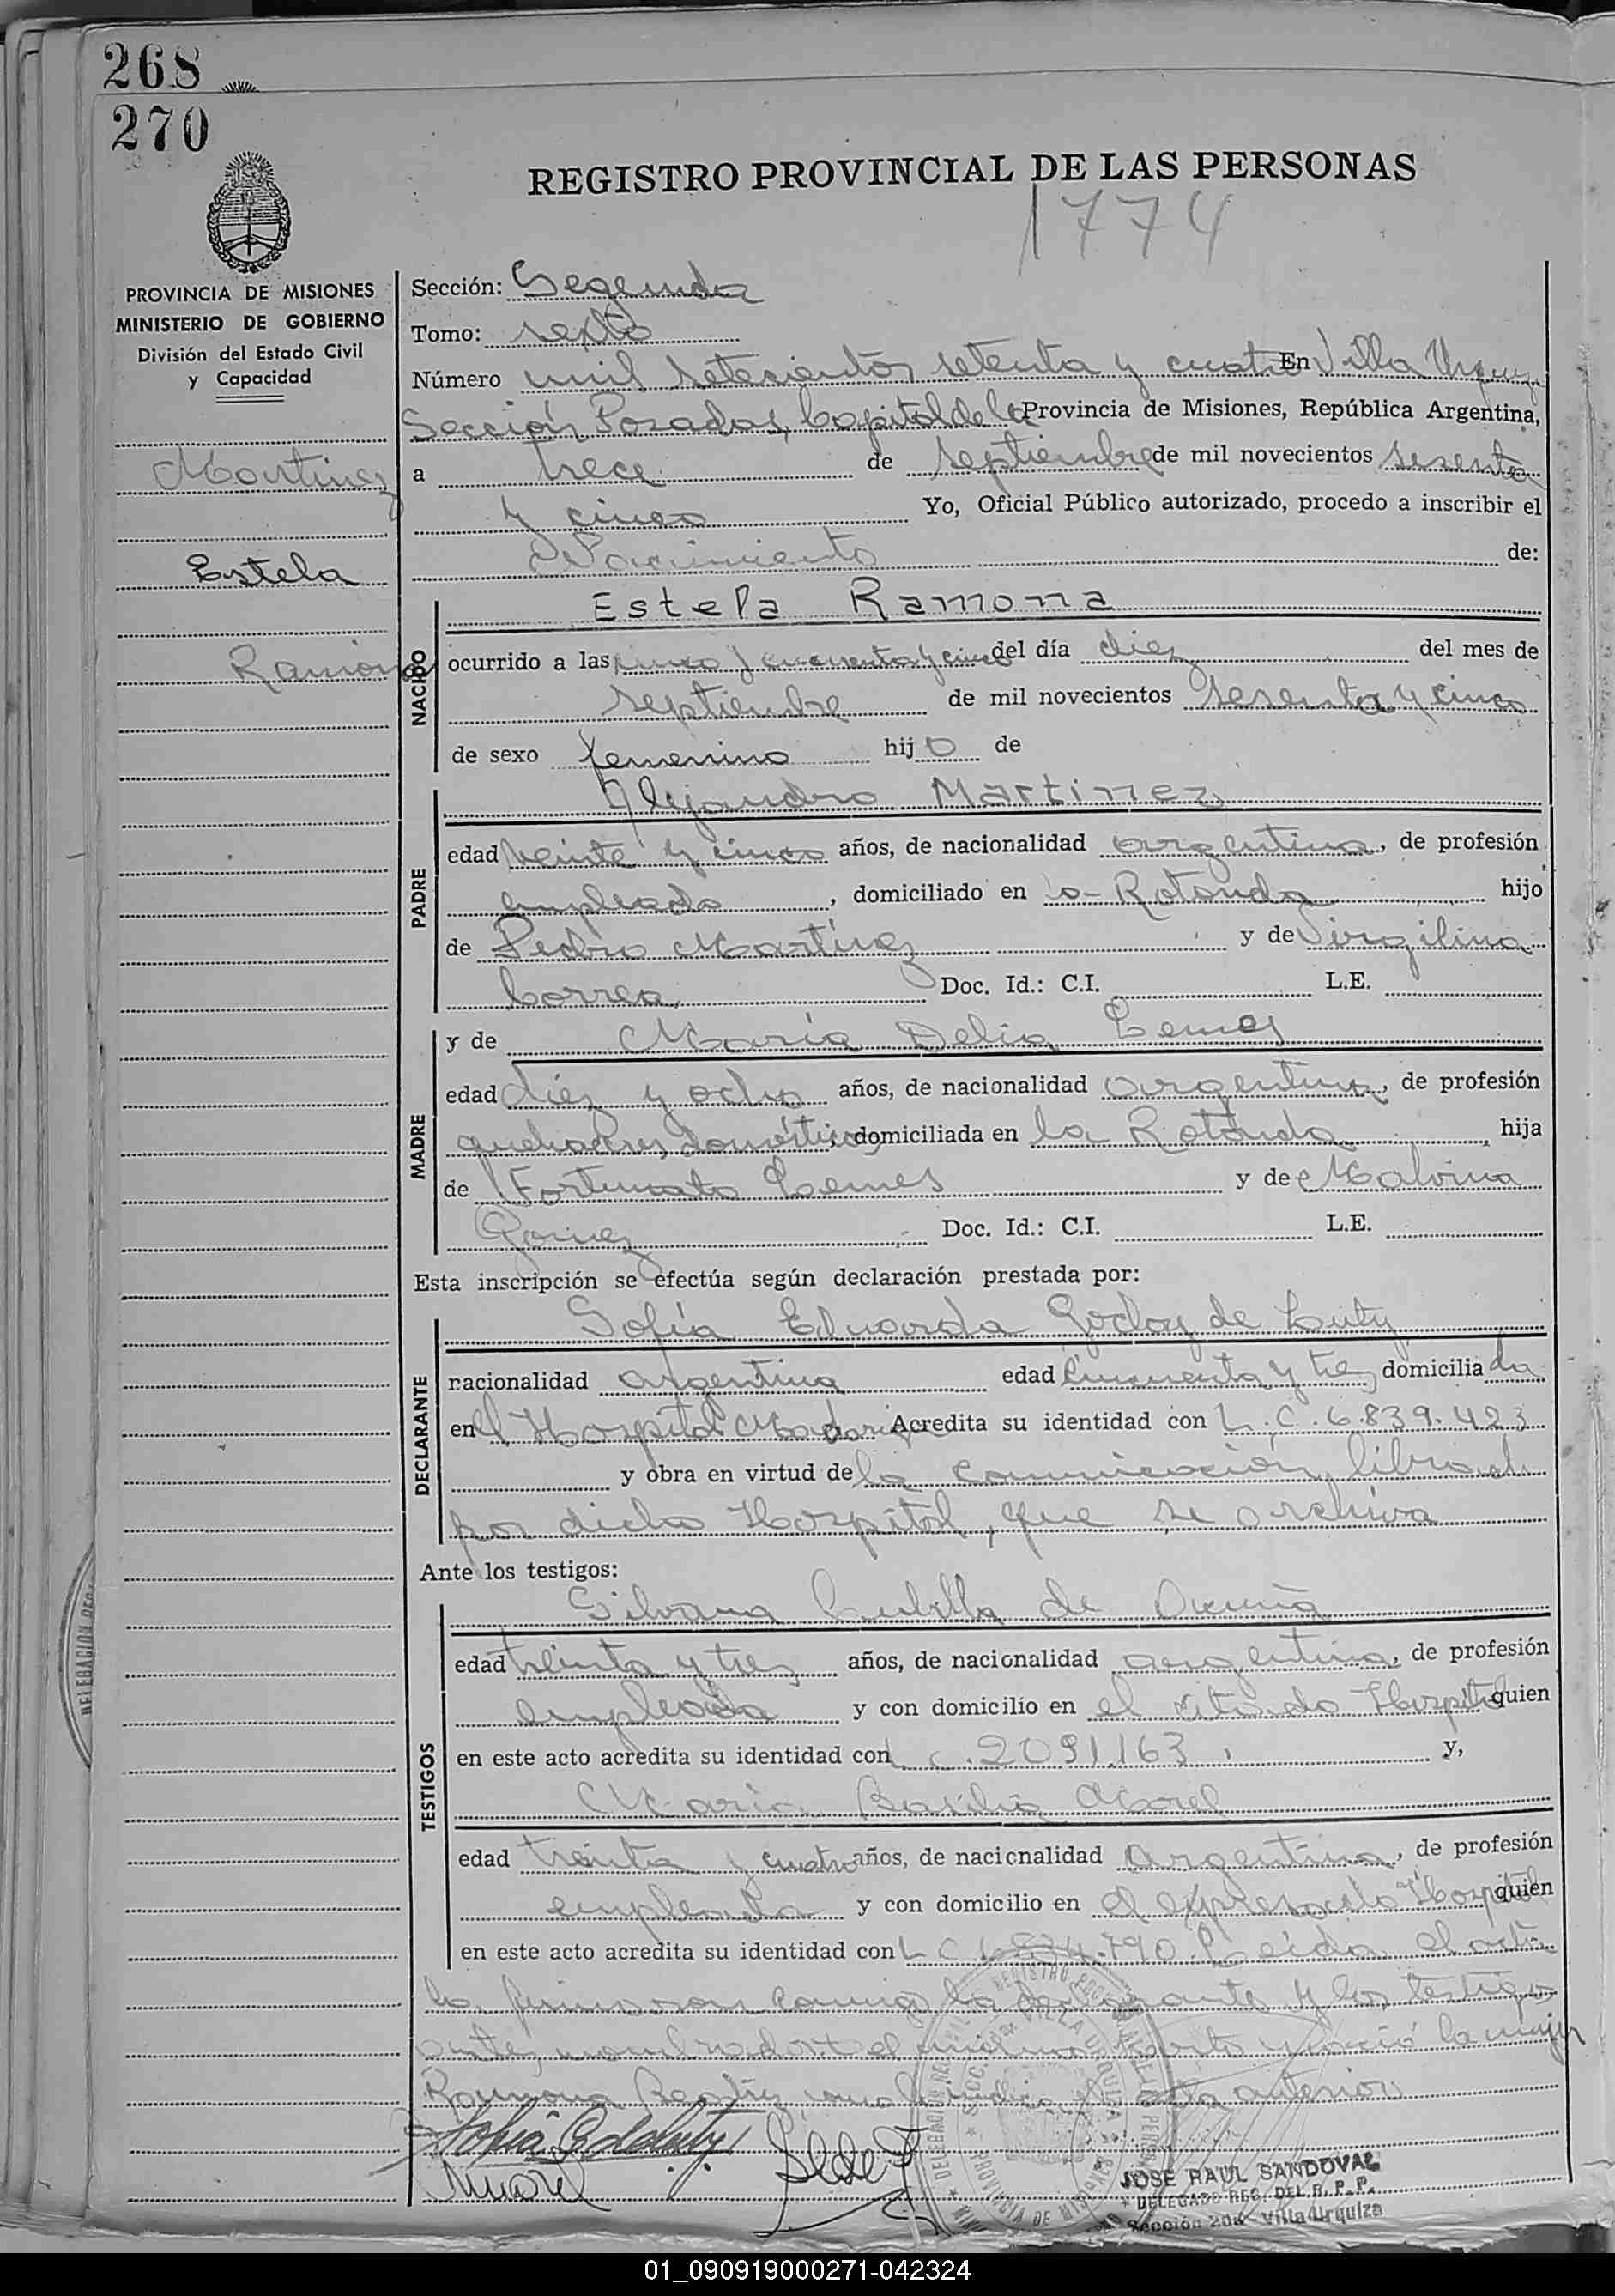 268
270
REGISTRO PROVINCIAL DE LAS PERSONAS
1774
PROVINCIA DE MISIONES
MINISTERIO DE GOBIERNO
División del Estado Civil
y Capacidad
Martinez
Estela
Ramona
Sección: Segunda
Tomo: sexto
Número mil setecientos setenta y cuatro En Villa Urquiza
Sección Posadas, Capital de la Provincia de Misiones, República Argentina,
a trece de septiembre de mil novecientos sesenta
y cinco Yo, Oficial Público autorizado, procedo a inscribir el
Nacimiento de:
NACIDO
Estela Ramona
ocurrido a las cinco y cuarenta y cinco del día diez del mes de
septiembre de mil novecientos sesenta y cinco
de sexo femenino hijo de
PADRE
Alejandro Martinez
edad veinte y cinco años, de nacionalidad argentina, de profesión
empleado, domiciliado en Rotonda hijo
de Pedro Martinez y de Virgilina
Correa Doc. Id.: C.I. L.E.
MADRE
y de María Delia Lemes
edad diez y ocho años, de nacionalidad argentina, de profesión
quehaceres domésticos, domiciliada en la Rotonda, hija
de Fortunato Lemes y de Malvina
Gomez Doc. Id.: C.I. L.E.
Esta inscripción se efectúa según declaración prestada por:
DECLARANTE
Sofía Eduarda Godoy de
nacionalidad argentina edad cincuenta y tres domiciliada
en el Hospital Madariaga Acredita su identidad con L.C. 6.839.423
y obra en virtud de la comunicación librada
por dicho Hospital, que se archiva
Ante los testigos:
TESTIGOS
Silvana Cubilla de Acuña
edad treinta y tres años, de nacionalidad argentina, de profesión
empleada y con domicilio en el citado Hospital quien
en este acto acredita su identidad con L.C. 2091163, y,
María Basilia Morel
edad treinta y cuatro años, de nacionalidad argentina, de profesión
empleada y con domicilio en el expresado Hospital quien
en este acto acredita su identidad con L C 790 Leida el acta
la firmaron conmigo la declarante y los testigos
antes nombrados nació la mujer
Ramona Beatriz acta anterior
JOSE RAUL SANDOVAL
DELEGADO REG. DEL R. P. P.
Sección 2da - Villa Urquiza
01_090919000271-042324